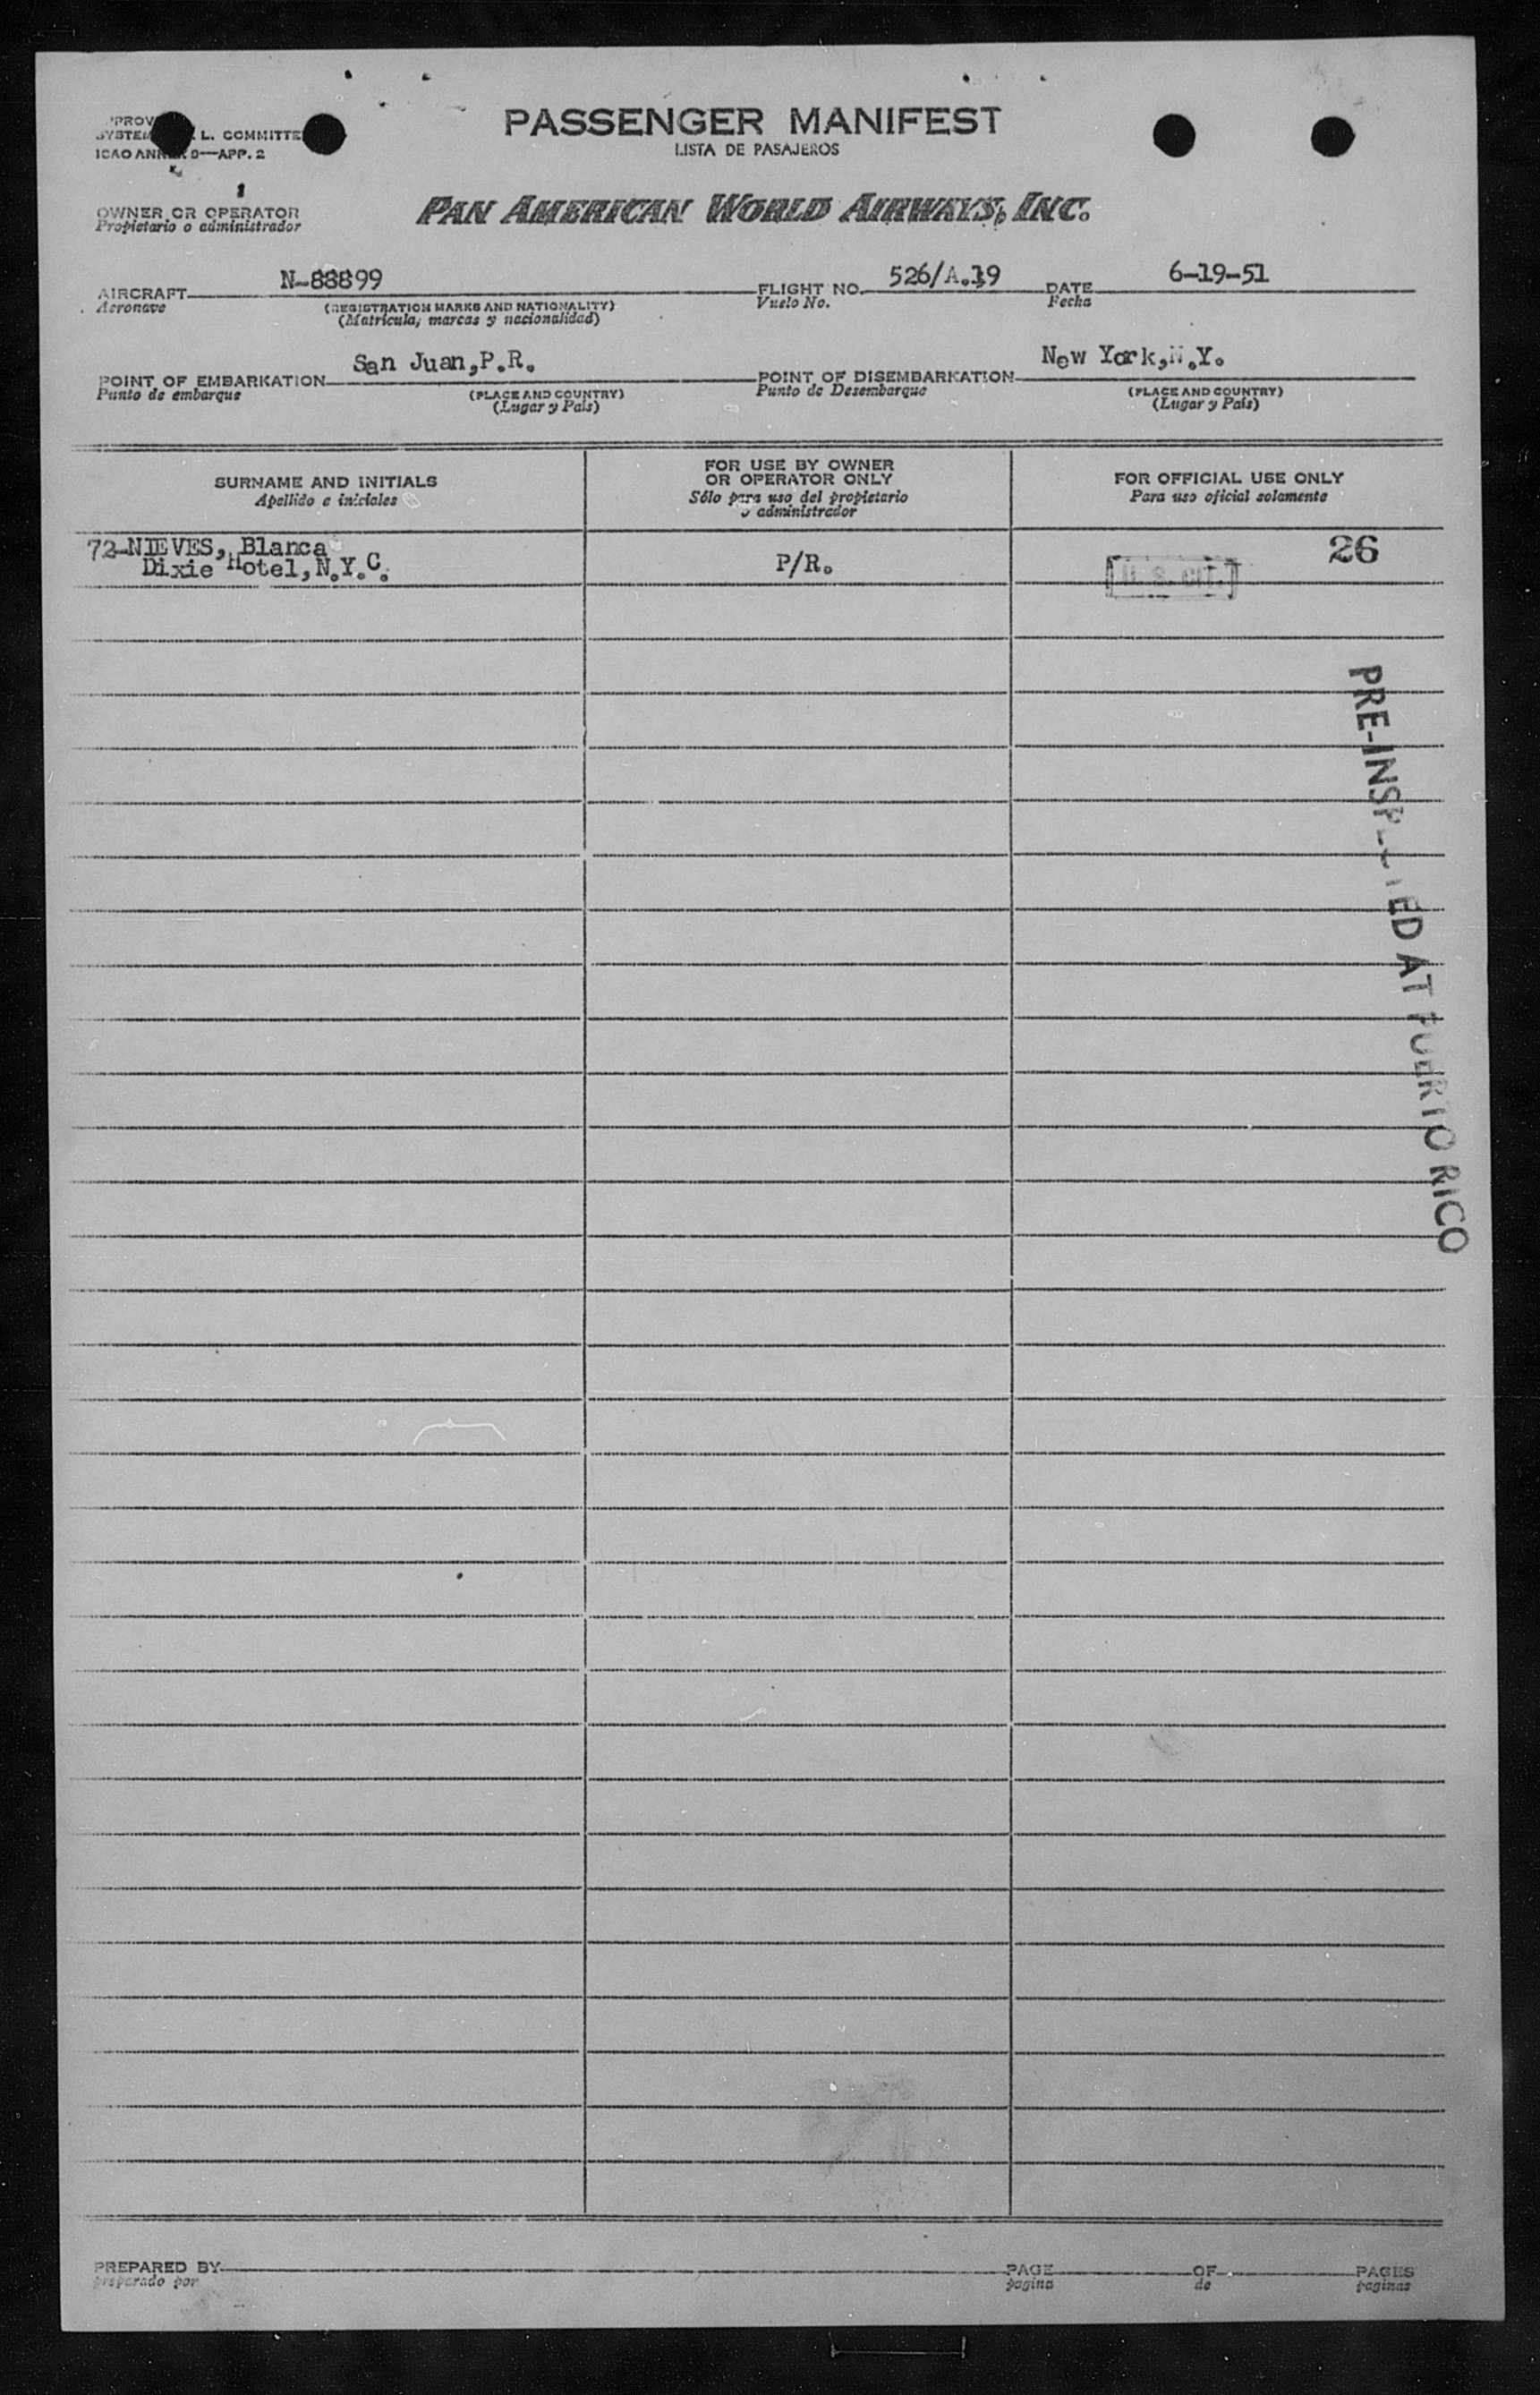 PASSENGER MANIFEST
LISTA DE PASAJEROS
L. COMMITTE
ICAO 9—APP. 2
OWNER OR OPERATOR
Propietario o administrador
PAN AMERICAN WORLD AIRWAYS, INC.
AIRCRAFT N-88899 FLIGHT NO. 526/A.19 DATE 6-19-51
Aeronave (REGISTRATION MARKS AND NATIONALITY) Vuelo No. Fecha
(Matrícula, marcas y nacionalidad)
POINT OF EMBARKATION San Juan,P.R. POINT OF DISEMBARKATION New York,N.Y.
Punto de embarque (PLACE AND COUNTRY) Punto de Desembarque (PLACE AND COUNTRY)
(Lugar y País) (Lugar y País)
SURNAME AND INITIALS
Apellido e iniciales
FOR USE BY OWNER
OR OPERATOR ONLY
Sólo para uso del propietario
o administrador
FOR OFFICIAL USE ONLY
Para uso oficial solamente
72-NIEVES, Blanca
Dixie Hotel,N.Y.C.
P/R.
U. S. CIT.
26
PRE-INSPECTED AT PUERTO RICO
PREPARED BY PAGE OF PAGES
preparado por pagina de paginas